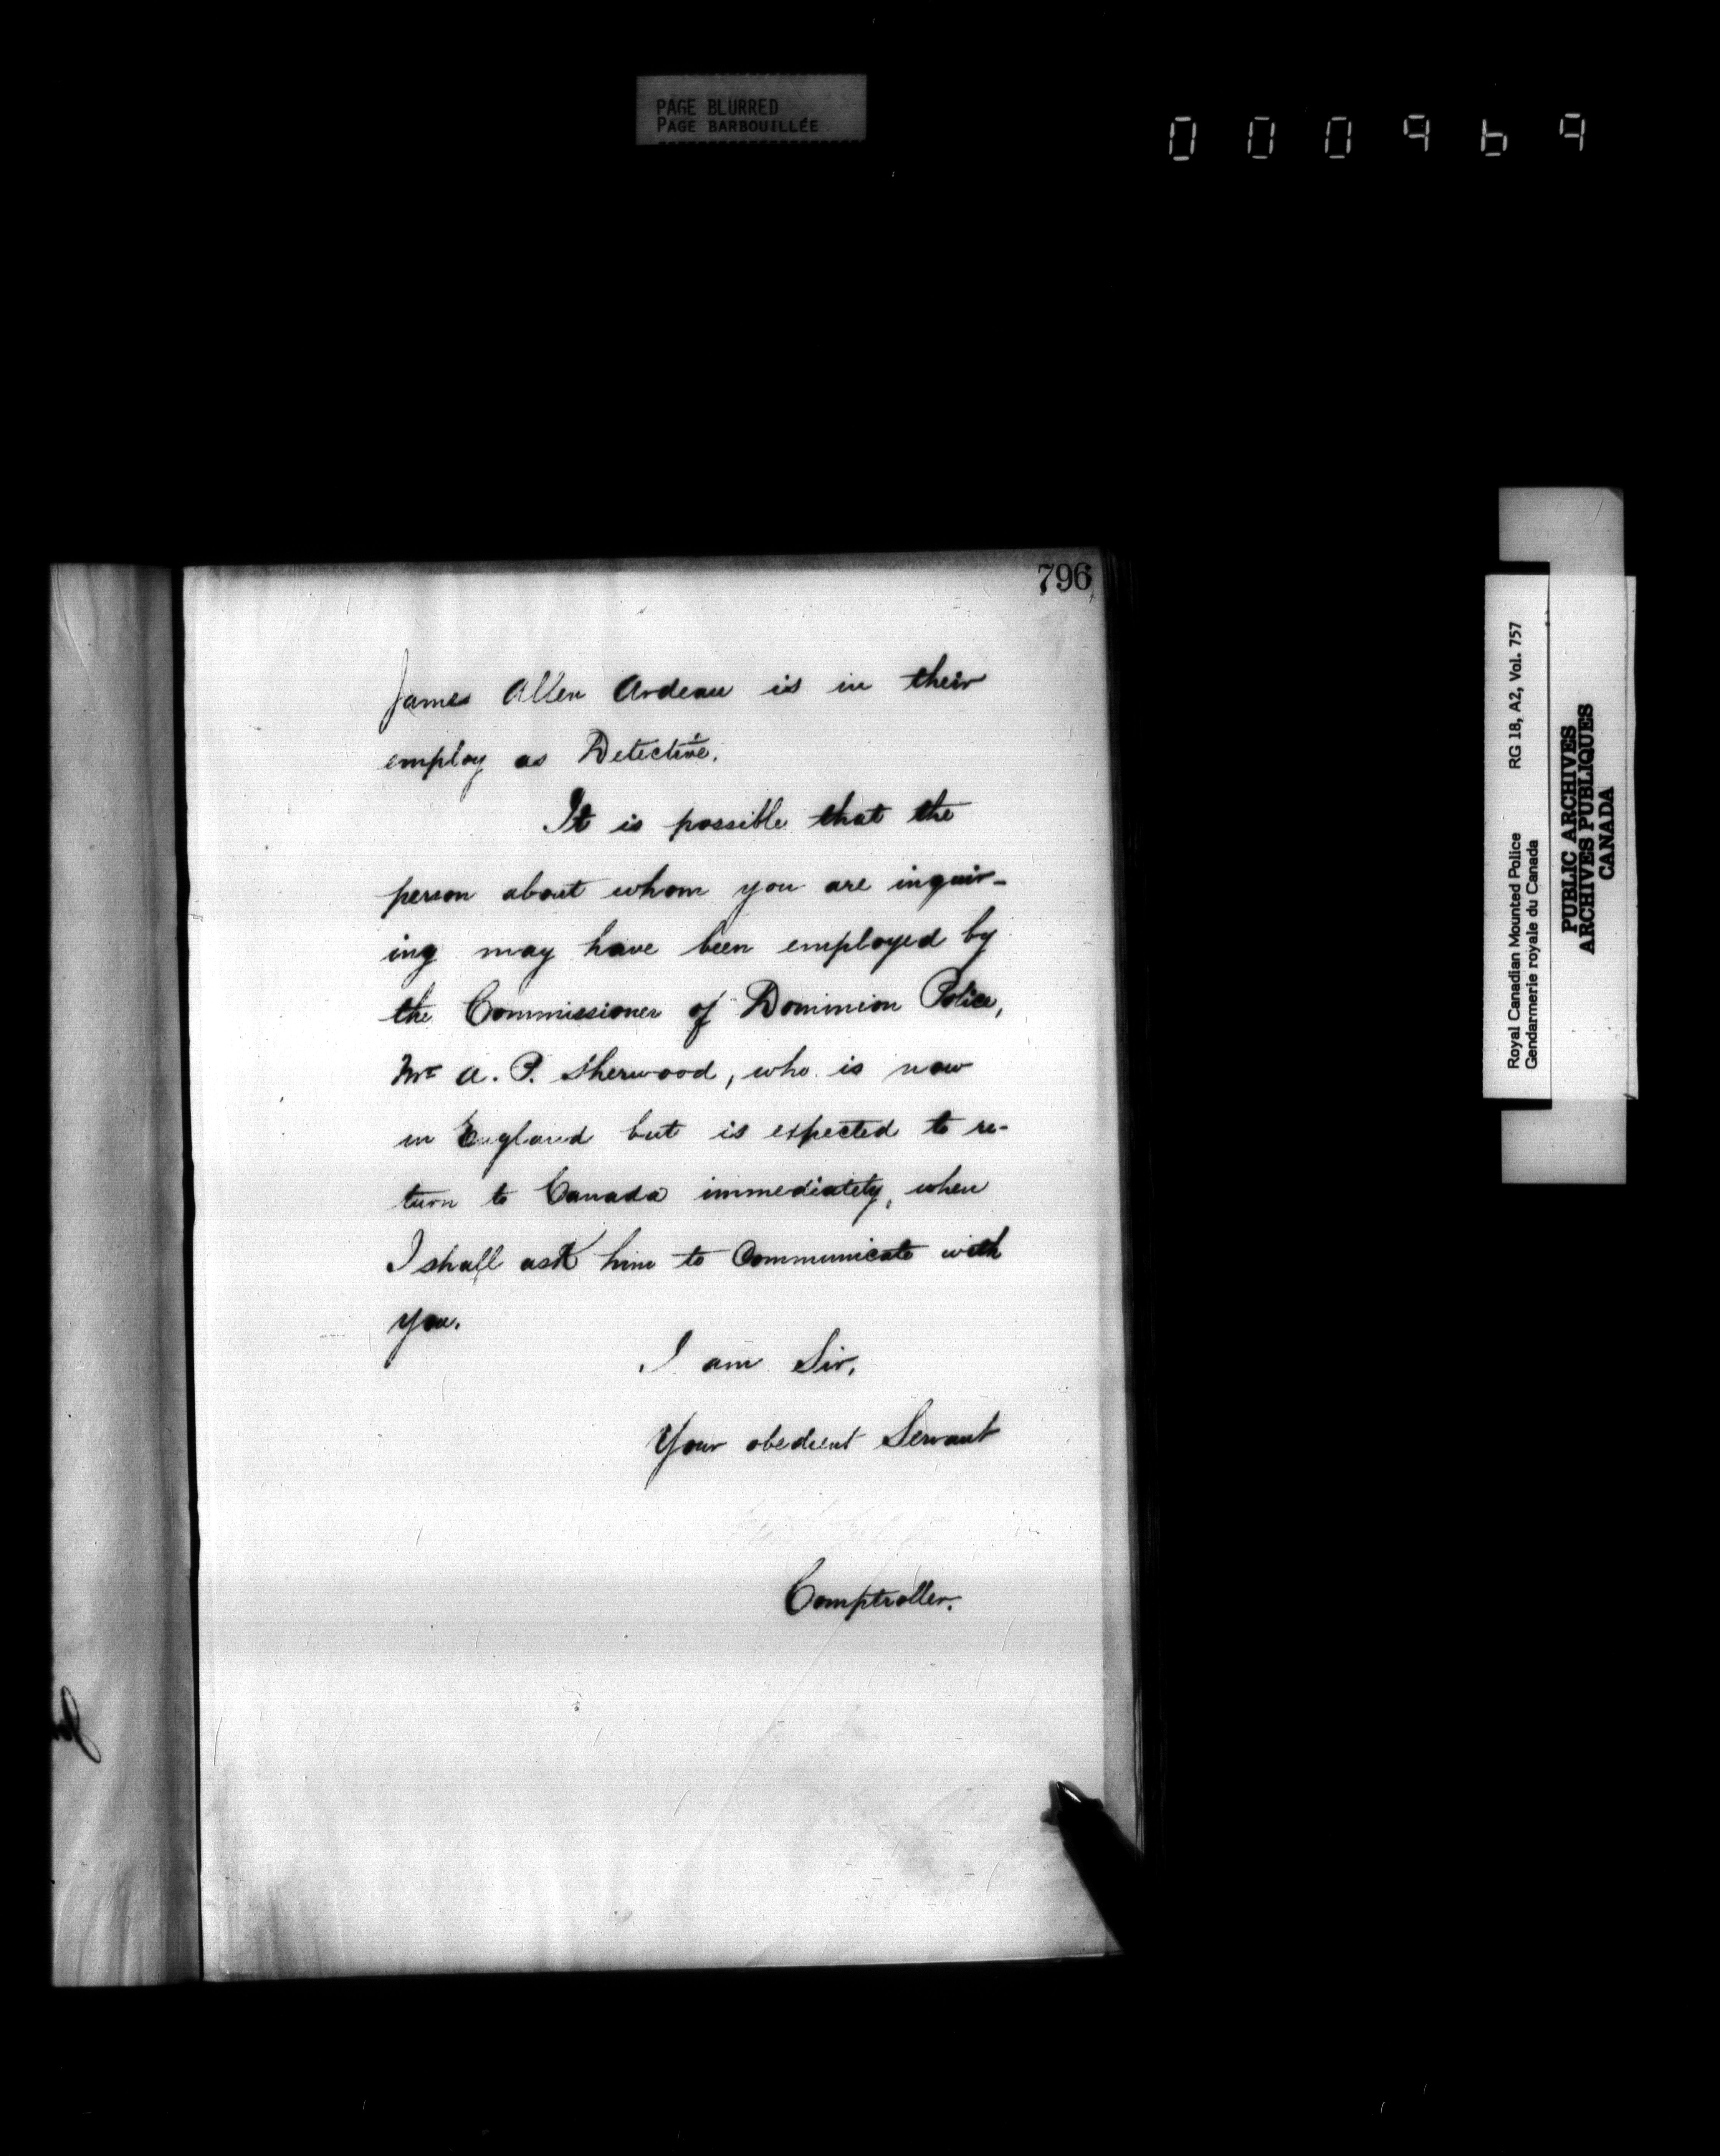 PAGE BLURRED
PAGE BARBOUILLÉE
000969
796
James Allen Ardeau is in their
employ as Detective.
It is possible that the
person about whom you are inquir-
ing may have been employed by
the Commissioner of Dominion Police,
Mr A. P. Sherwood, who is now
in England but is expected to re-
turn to Canada immediately, when
I shall ask him to Communicate with
you.
I am Sir,
Your obedient Servant
Comptroller.
Royal Canadian Mounted Police RG 18, A2, Vol. 757
Gendarmerie royale du Canada
PUBLIC ARCHIVES
ARCHIVES PUBLIQUES
CANADA